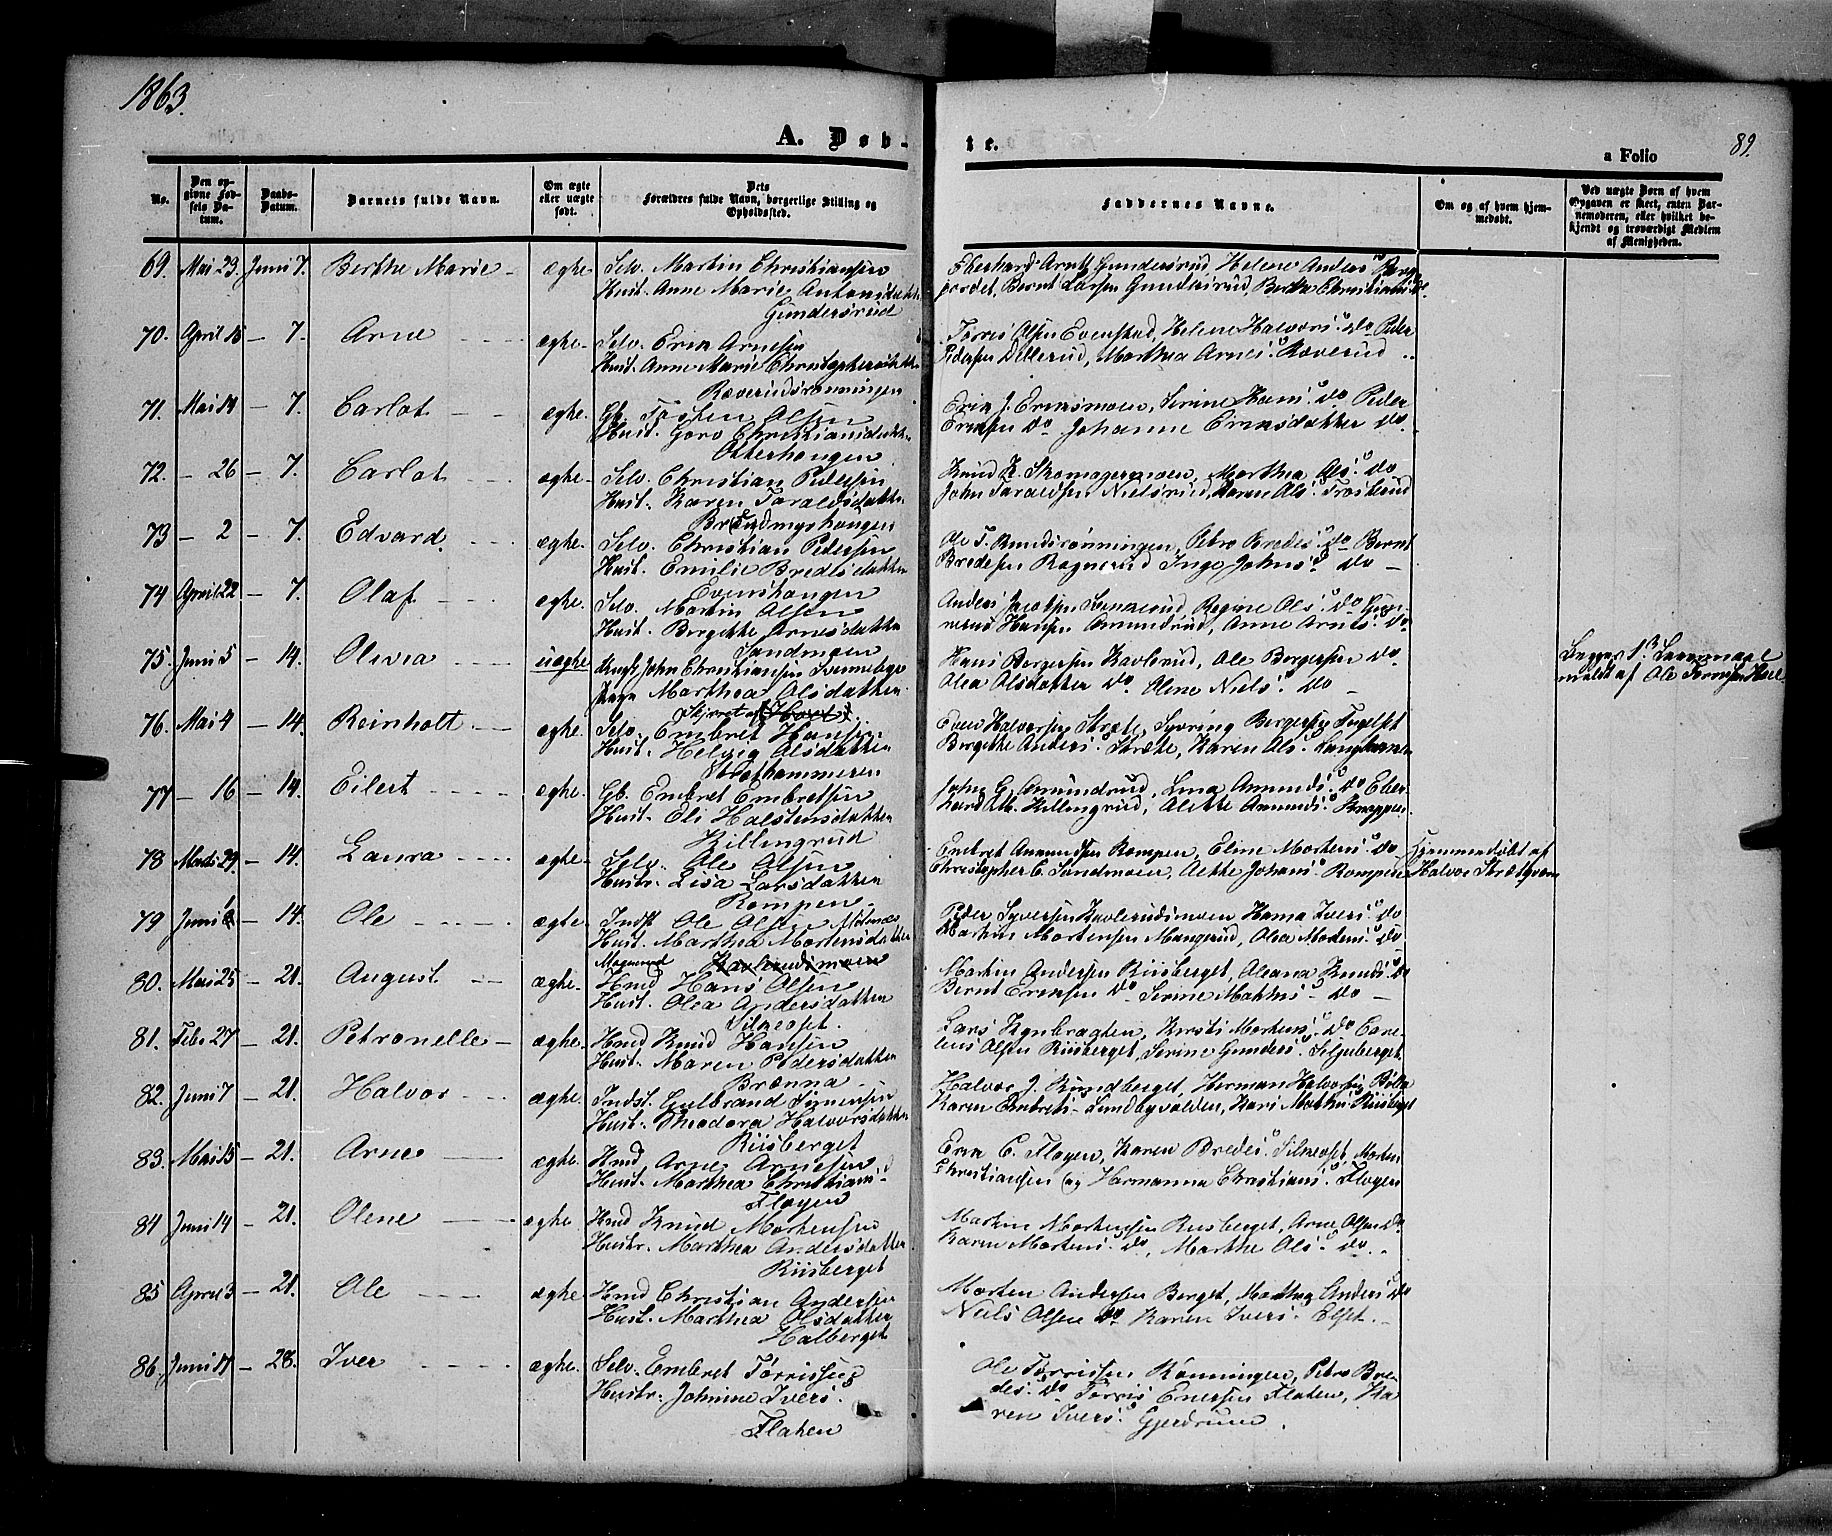 1863.
A. Døb-
te.
a Folio
89.
No.
Den op-
givne Fød-
sels Da-
tum.
Daabs-
Datum.
Barnets fulde Navn.
Om ægte
eller uægte
født.
Dets
Forældres fulde Navn, borgerlige Stilling og
Opholdssted.
Faddernes Navne.
Om og af hvem hjem-
medøbt.
Ved uægte Børn af hvem
Opgaven er skeet, enten Bar-
nemoderen, eller hvilket be-
kjendt og troværdigt Medlem
af Menigheden.
69. Mai 29. Juni 7. Berthe Marie - ægte Selv. Martin Christiansen
Hust. Anne Marie Antonsdatter
Gundersrud
Eberhard Arnts Gundersrud, Helene Anders
Bernt Larsen Gundersrud, Berthe Christians
70. April 15 - 7. Arne ægte. Selv. Erik Arnesen
Hust. Anne Marie Christophersdatter
Røverudsrønningen
Tørris Olsen Evenstad, Helene Halvors. do Peder
Pedersen Dillerud, Marthea Arnes. Røverud
71. Mai 14 - 7. Carlot ægte. Gb. Torsten Olsen
Hust. Goro Christiansdatter
Otterhougen
Erik J. Eriksmoen, Serine do Peder
Eriksen do Johanne Eriksdatter do.
72. - 26 - 7. Carlot ægte- Selv. Christian Pedersen
Hust. Karen Taraldsdatter
Knud K. Skomagermoen, Marthea Ols. do
John Taraldsen Nielsrud, Karen Ols. Frøserud
73 - 2 - 7. Edvard ægte. Selv. Christian Pedersen
Hust. Emilie Bredesdatter
Evenshaugen
Ole T. Rundsrønningen, Petro Bredes. do Bernt
Bredesen Rognerud Inge Johns. do -
74 April 22 - 7. Olaf ægte. Selv. Martin Olsen
Hust. Birgitte Arnesdatter
Sandmoen
Anders Jacobsen Regine Ols. do
Hansen Amundrud, Anne Arnts. do
75. Juni 5 - 14. Olivia uægte Ungk. John Christiansen
Pige Marthea Olsdatter
Hans Bergersen Kavlerud, Ole Bergersen do
Olea Olsdatter do. Oline Niels. do -
Begges 1. Leiermaal
meldt af Ole
76. Mai 4 - 14. Reinholt ægte. Selv. Embret Hansen
Hust. Helvig Olsdatter
Even Halvorsen Stræte, Syvring Bergersen
Birgitte Anders. Stræte, Karen Ols.
77 - 16 - 14. Eilert ægte. Gb. Embret Embretsen
Hust. Eli Halstensdatter
Killingrud
John E. Amundrud, Lina Amunds. do Eber-
hard Killingrud, Alette Amunds. Knappen
78 Marts 29 - 14. Laura ægte Selv. Ole Olsen
Hustr. Lisa Larsdatter
Rompen.
Embret Amundsen Rompen, Eline Mortens. do
Christopher C. Sandmoen, Aette Johans. Rompen
Hjemmedøbt af
Halvor
79 Juni - 14. Ole ægte. Indst. Ole Olsen
Hust. Marthea Mortensdatter
Kavlerudsmoen
Peder Syversen Kavlerudsmoen Hanna Ivers. do
Martin Mortensen Mangerud, Olea Mortens. do
80. Mai 25 - 21. August ægte. Hmd Hans Olsen
Hust. Olea Andersdatter
Silkeset.
Martin Andersen Riisberget, Oleana Knuds. do
Bernt Eriksen do Serine Mathis. do -
81. Febr 27 - 21. Petronelle - ægte. Hmd Knud Hansen
Hust. Maren Pedersdatter
Brænna
Lars Kynbragten, Kirsti Mortens. do Core-
lius Olsen Riisberget, Serine Gunders. Siljuberget
82. Juni 7 - 21. Halvor ægte. Indst. Gulbrand Simensen
Hust. Theodora Halvorsdatter
Riisberget
Halvor J. Rundberget, Herman Halvorsen
Karen Embrets. Lundbyvolden, Kari Mathis. Riisberget
83. Mai 15 - 21. Arne ægte. Hmd Arne Arnesen
Hust. Marthea Christians.
Fløgen
Erik C. Fløgen, Karen Bredes. Silkeset, Morten
Christiansen og Hermanna Christians. Fløgen
84 Juni 14 - 21. Olene ægte. Hmd Knud Mortensen
Hustr. Marthea Andersdatter
Riisberget
Martin Mortensen Riisberget, Arne Olsen do
Karen Mortens. do, Marthe Ols. do
85 April 3 - 21. Ole ægte Hmd Christian Andersen
Hust. Marthea Olsdatter
Halberget
Morten Andersen Berget, Marthea Anders. do
Niels Olsen do Karen Ivers. Elset.
86. Juni 17 - 28. Iver ægte. Selv. Embret Tørrissen
Hustr. Johnine Ivers.
Flaten
Ole Tørrissen Rønningen, Petro Bre-
des. do Tørris Enersen Flaten, Ka-
ren Ivers. Gjerdrum.